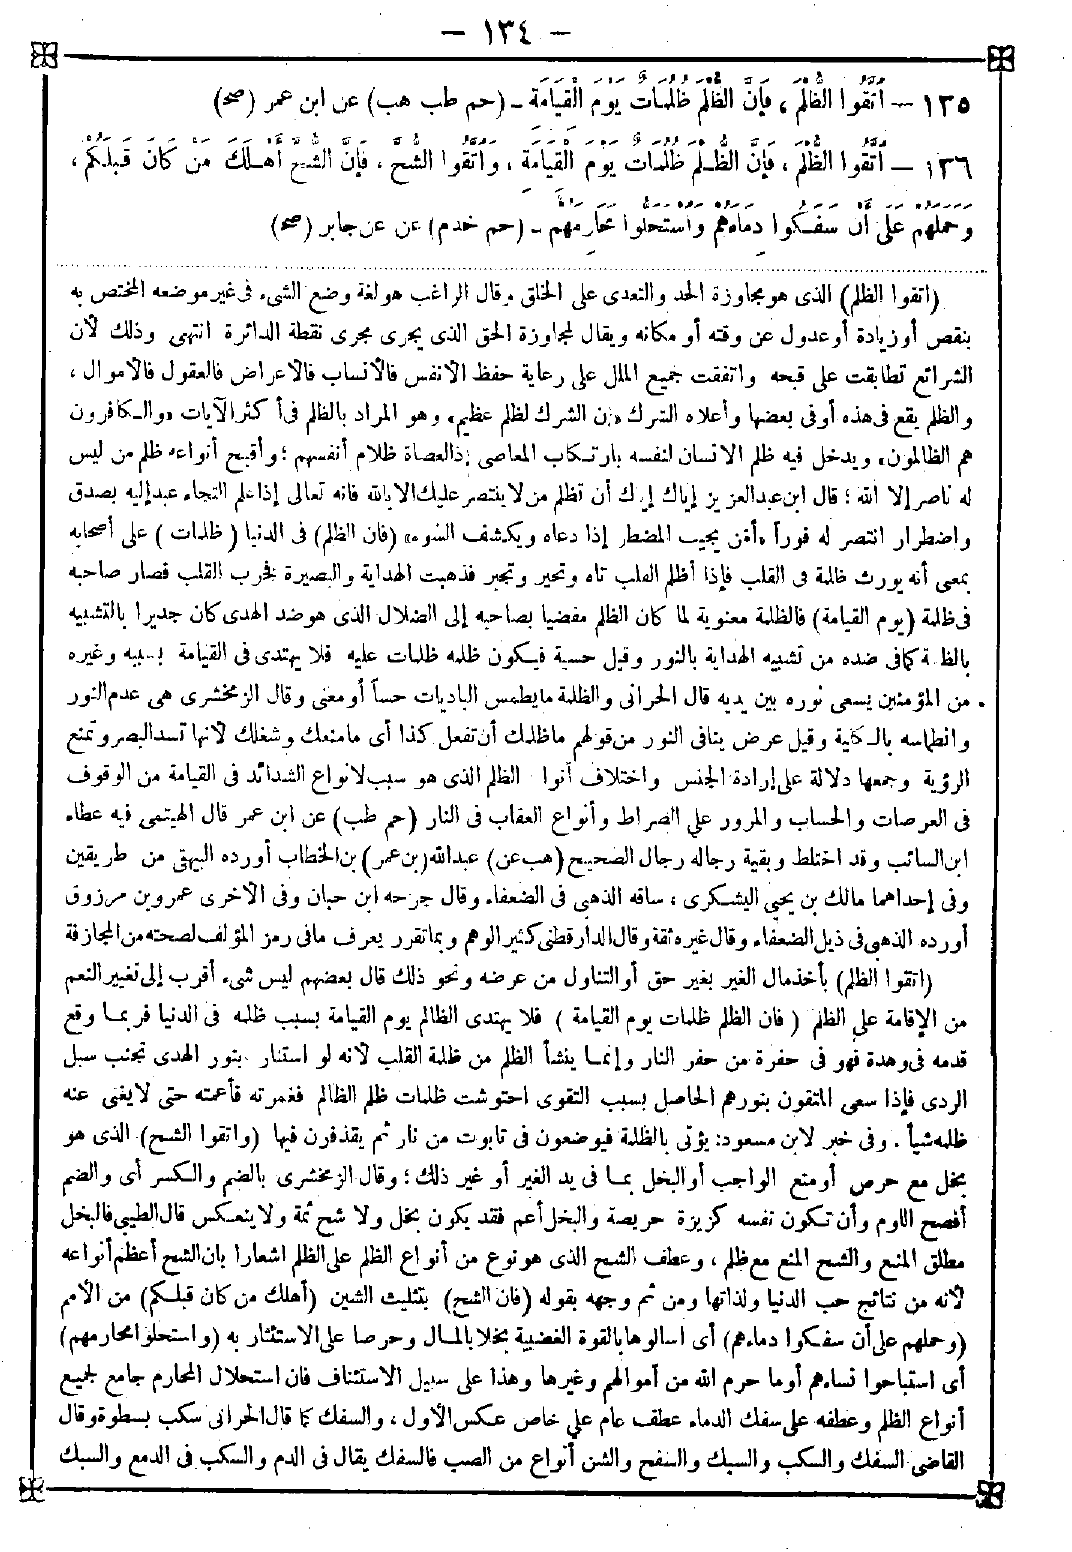 – ١٣٤ –
١٣٥ – اتَّقُوا الظُّلْمَ ، فَإِنَّ الظُّلْمَ ظُلُمَاتٌ يَوْمَ الْقِيَامَةِ – (حم طب هب) عن ابن عمر (صح)
١٣٦ – اتَّقُوا الظُّلْمَ ، فَإِنَّ الظُّلْمَ ظُلُمَاتٌ يَوْمَ الْقِيَامَةِ ، وَاتَّقُوا الشُّحَّ ، فَإِنَّ الشُّحَّ أَهْلَكَ مَنْ كَانَ قَبْلَكُمْ ،
وَحَمَلَهُمْ عَلَى أَنْ سَفَكُوا دِمَاءَهُمْ وَاسْتَحَلُّوا مَحَارِمَهُمْ – (حم خدم) عن عن جابر (صح)
(اتقوا الظلم) الذى هو مجاوزة الحد والتعدى على الخلق وقال الراغب هو لغة وضع الشىء فى غير موضعه المختص به
بنقص أو زيادة أو عدول عن وقته أو مكانه ويقال لمجاوزة الحق الذى يجرى مجرى نقطة الدائرة انتهى وذلك لأن
الشرائع تطابقت على قبحه واتفقت جميع الملل على رعاية حفظ الأنفس فالأنساب فالأعراض فالعقول فالأموال ،
والظلم يقع فى هذه أو فى بعضها وأعلاه الشرك «إن الشرك لظلم عظيم» وهو المراد بالظلم فى أكثر الآيات «والكافرون
هم الظالمون» ويدخل فيه ظلم الانسان لنفسه بارتكاب المعاصى إذ العصاة ظلام أنفسهم ؛ وأقبح أنواعه ظلم من ليس
له ناصر إلا الله ؛ قال ابن عبد العزيز إياك إياك أن تظلم من لا ينتصر عليك الا بالله فانه تعالى إذا علم التجاء عبد إليه بصدق
واضطرار انتصر له فوراً «أمن يجيب المضطر إذا دعاه ويكشف السوء» (فان الظلم) فى الدنيا (ظلمات) على أصحابه
بمعنى أنه يورث ظلمة فى القلب فإذا أظلم القلب تاه وتحير وتجبر فذهبت الهداية والبصيرة فخرب القلب فصار صاحبه
فى ظلمة (يوم القيامة) فالظلمة معنوية لما كان الظلم مفضيا بصاحبه إلى الضلال الذى هو ضد الهدى كان جديرا بالتشبيه
بالظلمة كما فى ضده من تشبيه الهداية بالنور وقيل حسية فيكون ظلمه ظلمات عليه فلا يهتدى فى القيامة بسببه وغيره
من المؤمنين يسعى نوره بين يديه قال الحرانى والظلمة ما يطمس الباديات حساً أو معنى وقال الزمخشرى هى عدم النور
وانطماسه بالكلية وقيل عرض ينافى النور من قولهم ما ظلمك أن تفعل كذا أى ما منعك وشغلك لأنها تسد البصر وتمنع
الرؤية وجمعها دلالة على إرادة الجنس واختلاف أنوا الظلم الذى هو سبب لأنواع الشدائد فى القيامة من الوقوف
فى العرصات والحساب والمرور على الصراط وأنواع العقاب فى النار (حم طب) عن ابن عمر قال الهيتمى فيه عطاء
ابن السائب وقد اختلط وبقية رجاله رجال الصحيح (هب عن) عبد الله (بن عمر) بن الخطاب أورده البيهقى من طريقين
وفى إحداهما مالك بن يحيى اليشكرى ، ساقه الذهبى فى الضعفاء وقال جرحه ابن حبان وفى الأخرى عمرو بن مرزوق
أورده الذهبى فى ذيل الضعفاء وقال غيره ثقة وقال الدارقطنى كثير الوهم وبما تقرر يعرف ما فى رمز المؤلف لصحته من المجازفة
(اتقوا الظلم) بأخذ مال الغير بغير حق أو التناول من عرضه ونحو ذلك قال بعضهم ليس شىء أقرب إلى تغيير النعم
من الإقامة على الظلم (فان الظلم ظلمات يوم القيامة) فلا يهتدى الظالم يوم القيامة بسبب ظلمه فى الدنيا فربما وقع
قدمه فى وهدة فهو فى حفرة من حفر النار وإنما ينشأ الظلم من ظلمة القلب لأنه لو استنار بنور الهدى تجنب سبل
الردى فإذا سعى المتقون بنورهم الحاصل بسبب التقوى احتوشت ظلمات ظلم الظالم فغمرته فأعمته حتى لا يغنى عنه
ظلمه شيأ . وفى خبر لابن مسعود: يؤتى بالظلمة فيوضعون فى تابوت من نار ثم يقذفون فيها (واتقوا الشح) الذى هو
بخل مع حرص أو منع الواجب أو البخل بما فى يد الغير أو غير ذلك ؛ وقال الزمخشرى بالضم والكسر أى والضم
أفصح اللوم وأن تكون نفسه كزيزة حريصة والبخل أعم فقد يكون بخل ولا شح ثمة ولا ينعكس قال الطيبى فالبخل
مطلق المنع والشح المنع مع ظلم ، وعطف الشح الذى هو نوع من أنواع الظلم على الظلم اشعارا بان الشح أعظم أنواعه
لأنه من نتائج حب الدنيا ولذاتها ومن ثم وجهه بقوله (فان الشح) بتثليث الشين (أهلك من كان قبلكم) من الأمم
(وحملهم على أن سفكوا دماءهم) أى اسالوها بالقوة الغضبية بخلا بالمال وحرصا على الاستئثار به (واستحلوا محارمهم)
أى استباحوا نساءهم أو ما حرم الله من أموالهم وغيرها وهذا على سبيل الاستئناف فان استحلال المحارم جامع لجميع
أنواع الظلم وعطفه على سفك الدماء عطف عام على خاص عكس الأول ، والسفك كما قال الحرانى سكب بسطوة وقال
القاضى السفك والسكب والسبك والسفح والشن أنواع من الصب فالسفك يقال فى الدم والسكب فى الدمع والسبك